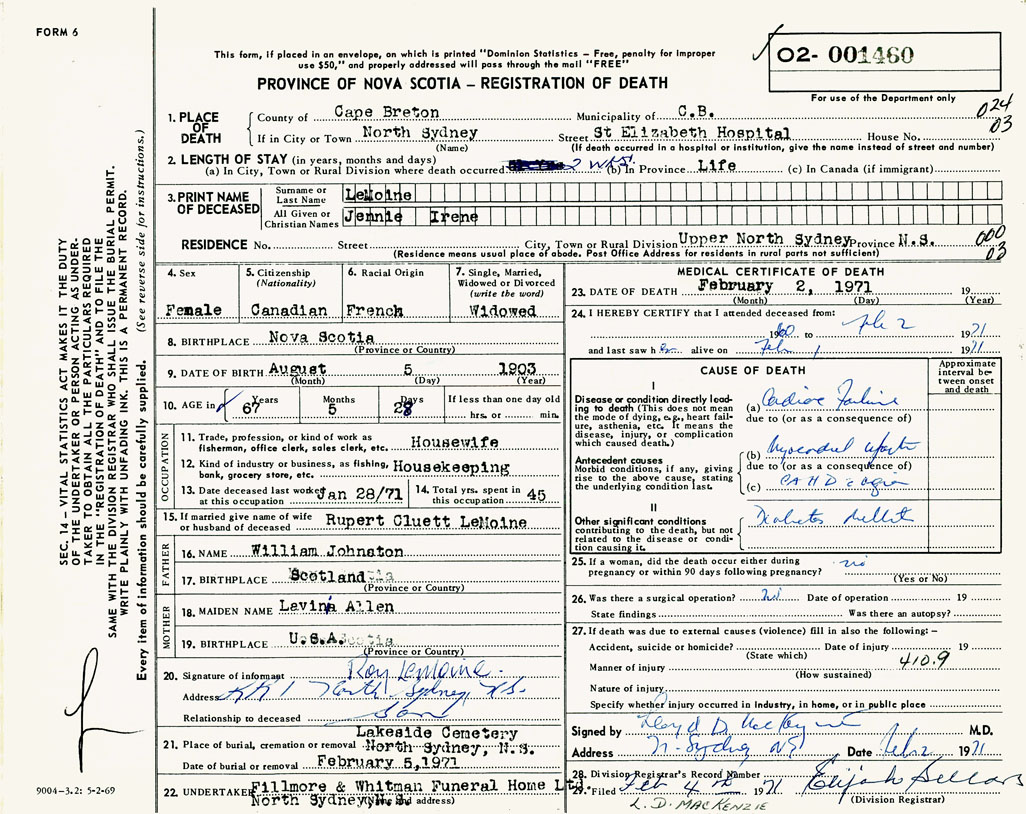 FORM 6
This form, if placed in an envelope, on which is printed "Dominion Statistics – Free, penalty for improper
use $50," and properly addressed will pass through the mail "FREE"
PROVINCE OF NOVA SCOTIA – REGISTRATION OF DEATH
02- 001460
For use of the Department only
024
03
1. PLACE OF DEATH
County of Cape Breton Municipality of C.B.
If in City or Town North Sydney Street St Elizabeth Hospital House No.
(Name) (If death occurred in a hospital or institution, give the name instead of street and number)
2. LENGTH OF STAY (in years, months and days)
(a) In City, Town or Rural Division where death occurred 2 wks. (b) In Province Life (c) In Canada (if immigrant)
3. PRINT NAME OF DECEASED
Surname or Last Name LeMoine
All Given or Christian Names Jennie Irene
RESIDENCE No. Street City, Town or Rural Division Upper North Sydney Province N.S.
(Residence means usual place of abode. Post Office Address for residents in rural parts not sufficient)
000
03
4. Sex
Female
5. Citizenship
(Nationality)
Canadian
6. Racial Origin
French
7. Single, Married, Widowed or Divorced
(write the word)
Widowed
8. BIRTHPLACE Nova Scotia
(Province or Country)
9. DATE OF BIRTH August 5 1903
(Month) (Day) (Year)
10. AGE in Years Months Days If less than one day old
67 5 28 hrs. or min.
OCCUPATION
11. Trade, profession, or kind of work as
fishermen, office clerk, sales clerk, etc. Housewife
12. Kind of industry or business, as fishing,
bank, grocery store, etc. Housekeeping
13. Date deceased last worked at this occupation Jan 28/71
14. Total yrs. spent in this occupation 45
15. If married give name of wife
or husband of deceased Rupert Cluett LeMoine
FATHER
16. NAME William Johnston
17. BIRTHPLACE Scotland
(Province or Country)
MOTHER
18. MAIDEN NAME Lavina Allen
19. BIRTHPLACE U.S.A.
(Province or Country)
20. Signature of informant Roy LeMoine
Address RR1 North Sydney, N.S.
Relationship to deceased Son
21. Place of burial, cremation or removal Lakeside Cemetery
North Sydney, N.S.
Date of burial or removal February 5,1971
22. UNDERTAKER Fillmore & Whitman Funeral Home Ltd.
North Sydney (Name and address)
MEDICAL CERTIFICATE OF DEATH
23. DATE OF DEATH February 2, 1971 19
(Month) (Day) (Year)
24. I HEREBY CERTIFY that I attended deceased from:
1960 to Feb 2 1971
and last saw her alive on Feb 1 1971
CAUSE OF DEATH
Approximate interval between onset and death
I
Disease or condition directly leading
to death (This does not mean
the mode of dying, e.g., heart failure,
asthenia, etc. It means the
disease, injury, or complication
which caused death.)
(a) Cardiac Failure
due to (or as a consequence of)
Antecedent causes
Morbid conditions, if any, giving
rise to the above cause, stating
the underlying condition last.
(b) Myocardial infarct
due to (or as a consequence of)
(c) CAHD
II
Other significant conditions
contributing to the death, but not
related to the disease or condition
causing it.
Diabetes Mellitus
25. If a woman, did the death occur either during
pregnancy or within 90 days following pregnancy? no
(Yes or No)
26. Was there a surgical operation? No Date of operation 19
State findings Was there an autopsy?
27. If death was due to external causes (violence) fill in also the following: –
Accident, suicide or homicide? Date of injury 19
(State which)
410.9
Manner of injury
(How sustained)
Nature of injury
Specify whether injury occurred in industry, in home, or in public place
Signed by Lloyd D. MacKenzie M.D.
Address N. Sydney NS Date Feb 2 1971
28. Division Registrar's Record Number
29. Filed Feb 4th 1971 Elijah Sellars
(Division Registrar)
L.D. MACKENZIE
SEC. 14 – VITAL STATISTICS ACT MAKES IT THE DUTY
OF THE UNDERTAKER OR PERSON ACTING AS UNDERTAKER
TO OBTAIN ALL THE PARTICULARS REQUIRED
IN THE "REGISTRATION OF DEATH" AND TO FILE THE
SAME WITH THE DIVISION REGISTRAR WHO SHALL ISSUE THE BURIAL PERMIT.
WRITE PLAINLY WITH UNFADING INK. THIS IS A PERMANENT RECORD.
Every item of information should be carefully supplied. (See reverse side for instructions.)
9004-3.2: 5-2-69